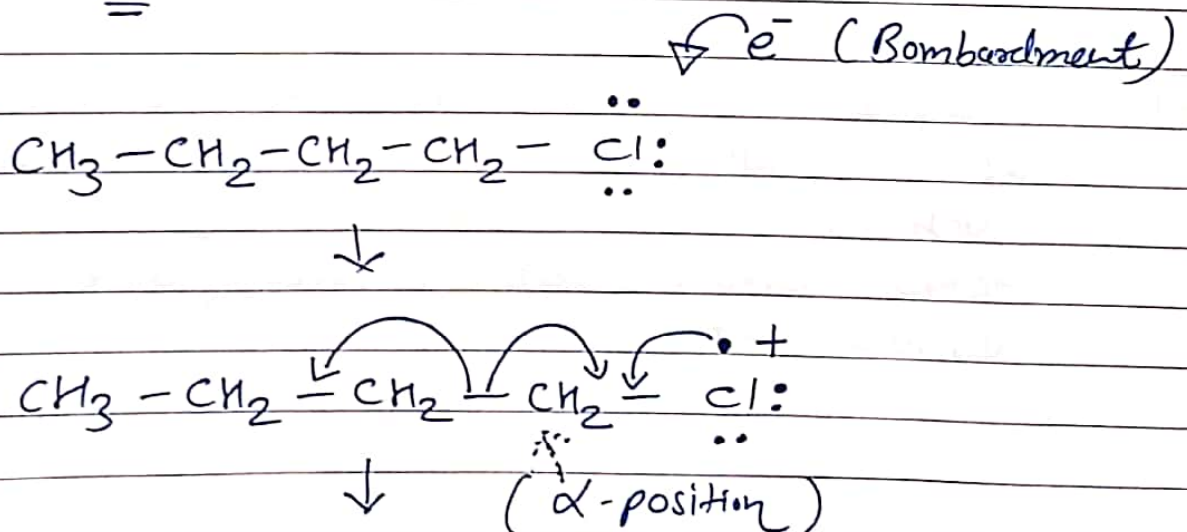 =
e⁻ (Bombardment)
CH₃ – CH₂ – CH₂ – CH₂ – Cl:
↓
CH₃ – CH₂ – CH₂ – CH₂ – Cl: • +
↓ (α - position)